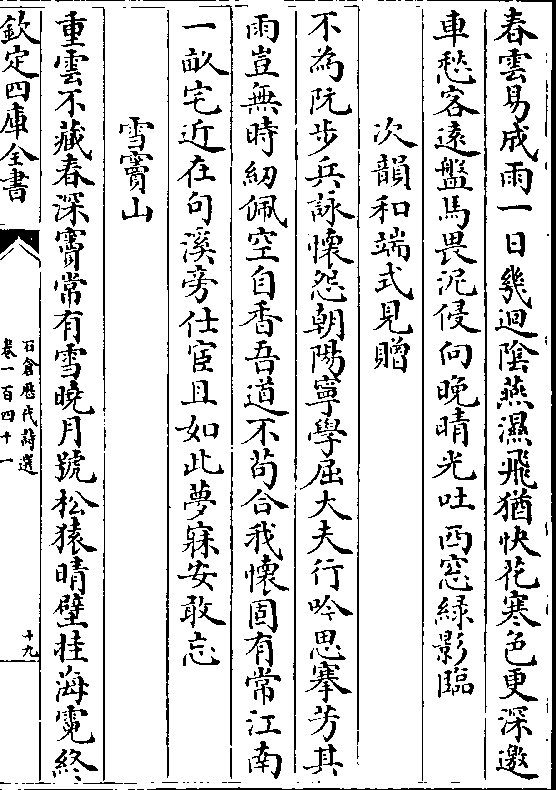 春雲易成雨一日幾迴陰燕濕飛猶快花寒色更深邀
車愁客遠盤馬畏泥侵向晚晴光吐西窓綠影臨
次韻和端式見贈
不為阮步兵詠懷怨朝陽寧學屈大夫行吟思搴芳其
雨豈無時紉佩空自香吾道不苟合我懷固有常江南
一畝宅近在句溪旁仕宦且如此夢寐安敢忘
雪竇山
重雲不藏春深竇常有雪曉月號松猿晴壁挂海霓終
欽定四庫全書
石倉歷代詩選
卷一百四十一
十九